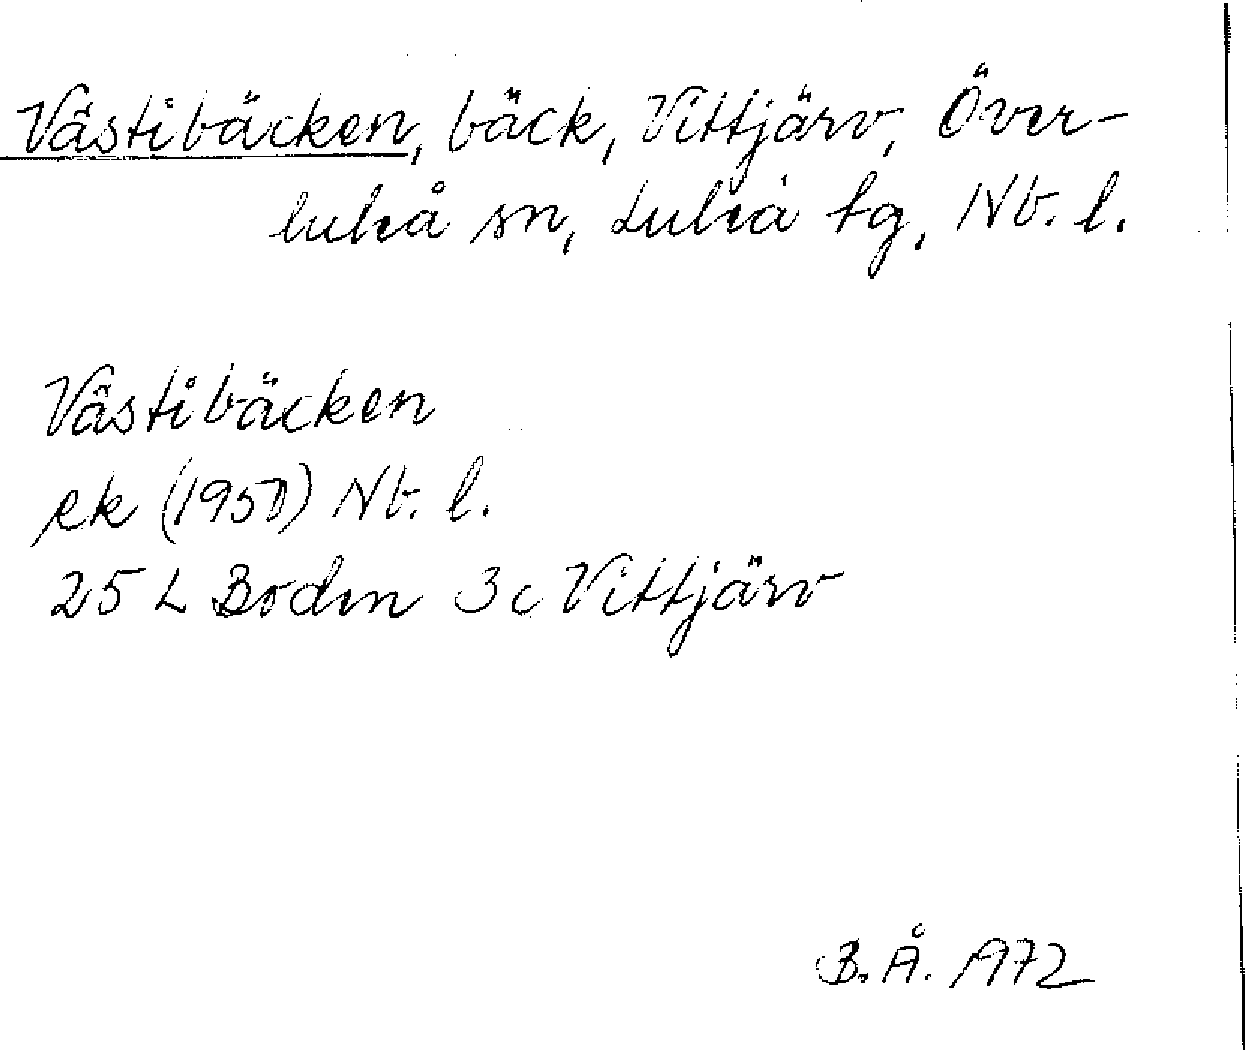 Västibäcken, bäck, Vittjärv, Över-
luleå sn, Luleå tg, Nb. l.
Västibäcken
ek (1950) Nb. l.
25 L Boden 3c Vittjärv
B. Å. 1972